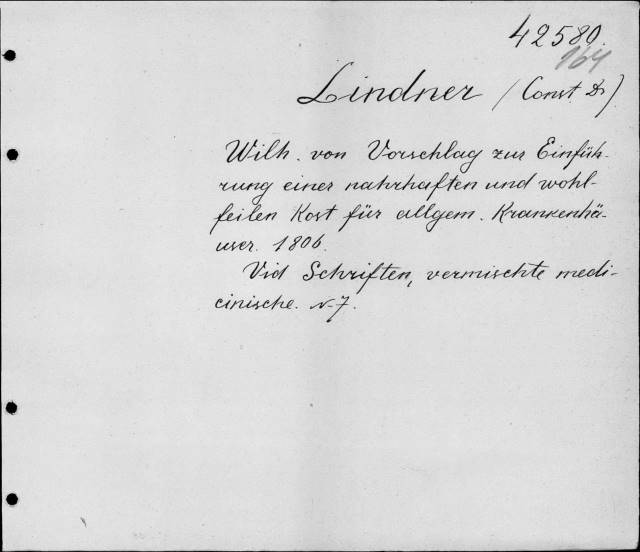 42580.
164
Lindner (Const. Dr)
Wilh. von Vorschlag zur Einfüh-
rung einer nahrhaften und wohl-
feilen Kost für allgem. Krankenhä-
user. 1806.
Vid Schriften, vermischte medi-
cinische. N-7.